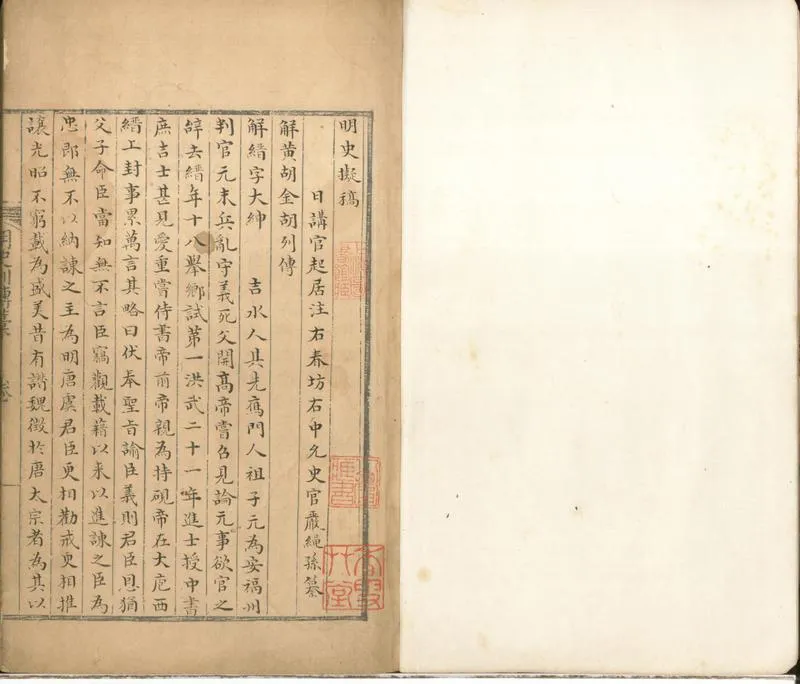 明史擬稿
日講官起居注右春坊右中允史官嚴繩孫纂
解黃胡金胡列傳
解縉字大紳 吉水人其先鴈門人祖子元為安福州
判官元末兵亂守義死父開高帝嘗召見論元事欲官之
辭去縉年十八舉鄉試第一洪武二十一年進士授中書
庶吉士甚見愛重嘗侍書帝前帝親為持硯帝在大庖西
縉上封事累萬言其略曰伏奉聖旨諭臣義則君臣恩猶
父子命臣當知無不言臣竊觀載籍以來以進諫之臣為
忠郎無不以納諫之主為明唐虞君臣更相勸戒更相推
讓光昭不窮載為盛美昔有譖魏徵於唐太宗者為其以